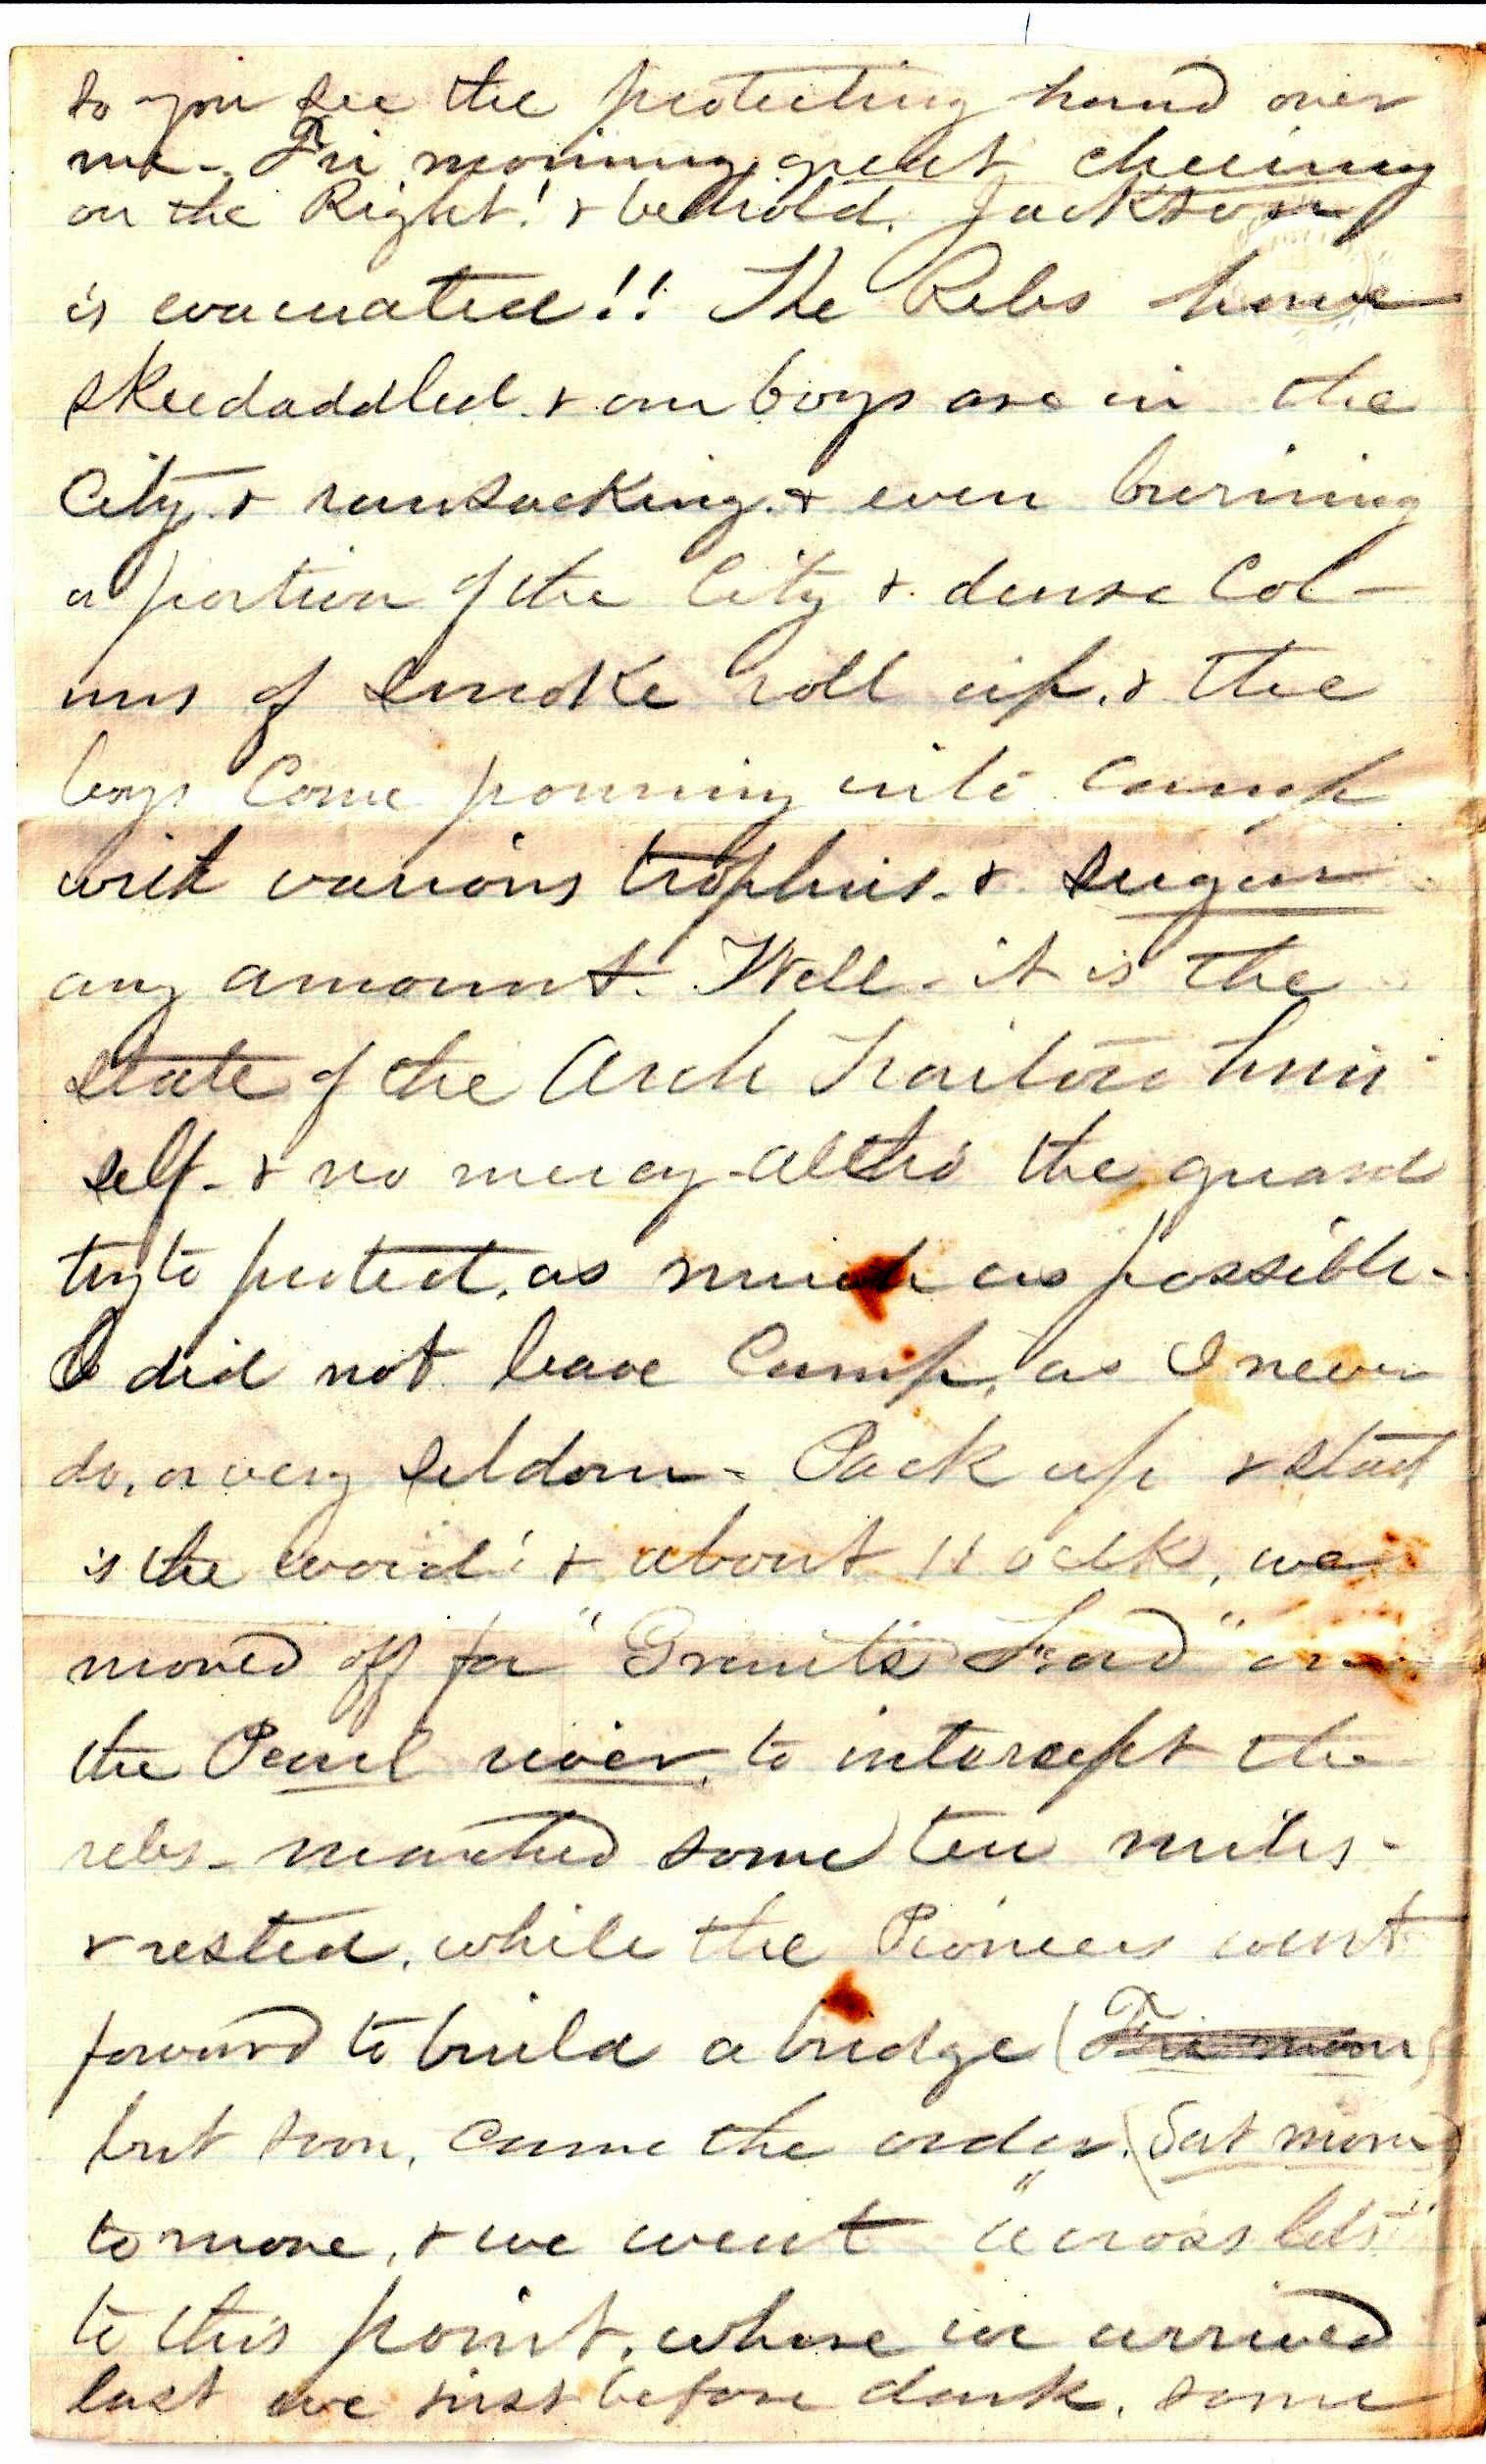 so you see the protecting hand over
me - Fri morning, great cheering
on the Right! & behold, Jackson
is evacuated!! The Rebs have
skeedaddled & our boys are in the
City & ransacking & even burning
a portion of the City & dense Col-
ums of smoke roll up, & the
boys Come pouring into camp
with various trophies - & sugar
any amount. Well - it is the
state of the Arch Traitor him-
self - & no mercy - altho the guard
try to protect, as much as possible -
I did not leave Camp, as I never
do, or very seldom - Pack up & start
is the word! & about 11 oclk, we
moved off for "Grants Ford" on
the Pearl river, to intersept the
rebs - marched some ten miles -
& rested, while the Pioneers went
forward to build a bridge (Fri morn)
but soon, came the order, (Sat morn)
to move, & we went "across lots"
to this point, where we arrived
last eve just before dark, some